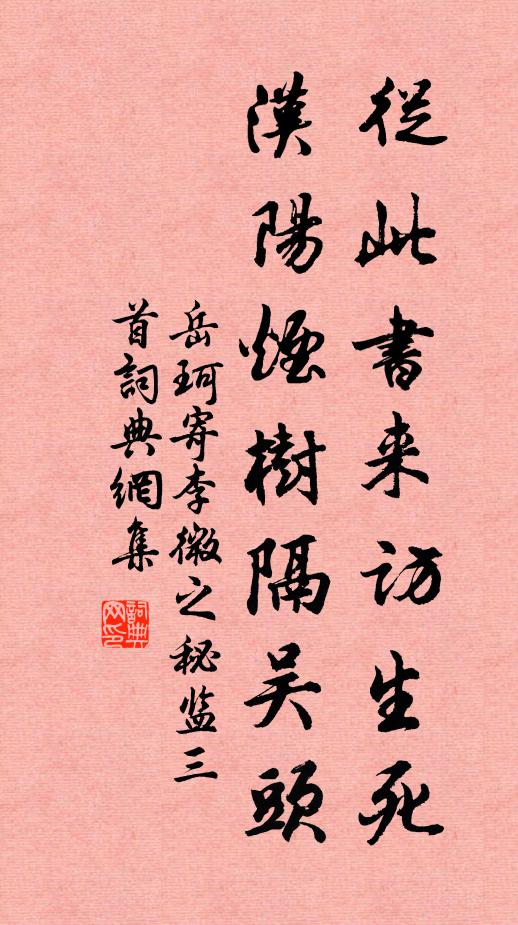 從此書来訪生死
漢陽煙樹隔吴頭
岳珂寄李微之秘监三
首詞典網集
詞典网印